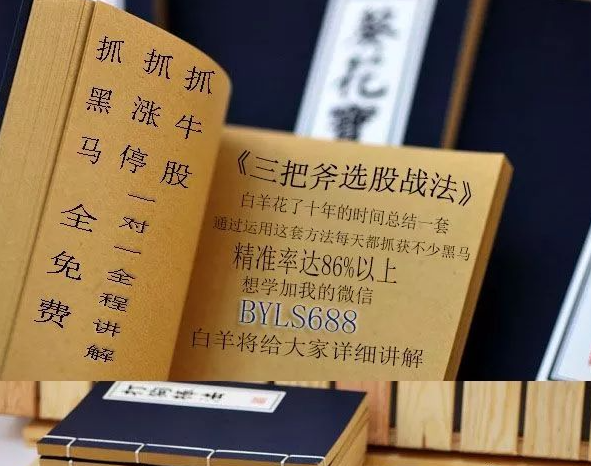 葵花寶
抓牛股
抓涨停一对一全程讲解
抓黑马全免费
《三把斧选股战法》
白羊花了十年的时间总结一套
通过运用这套方法每天都抓获不少黑马
精准率达86%以上
想学加我的微信
BYLS688
白羊将给大家详细讲解
打狗棒法